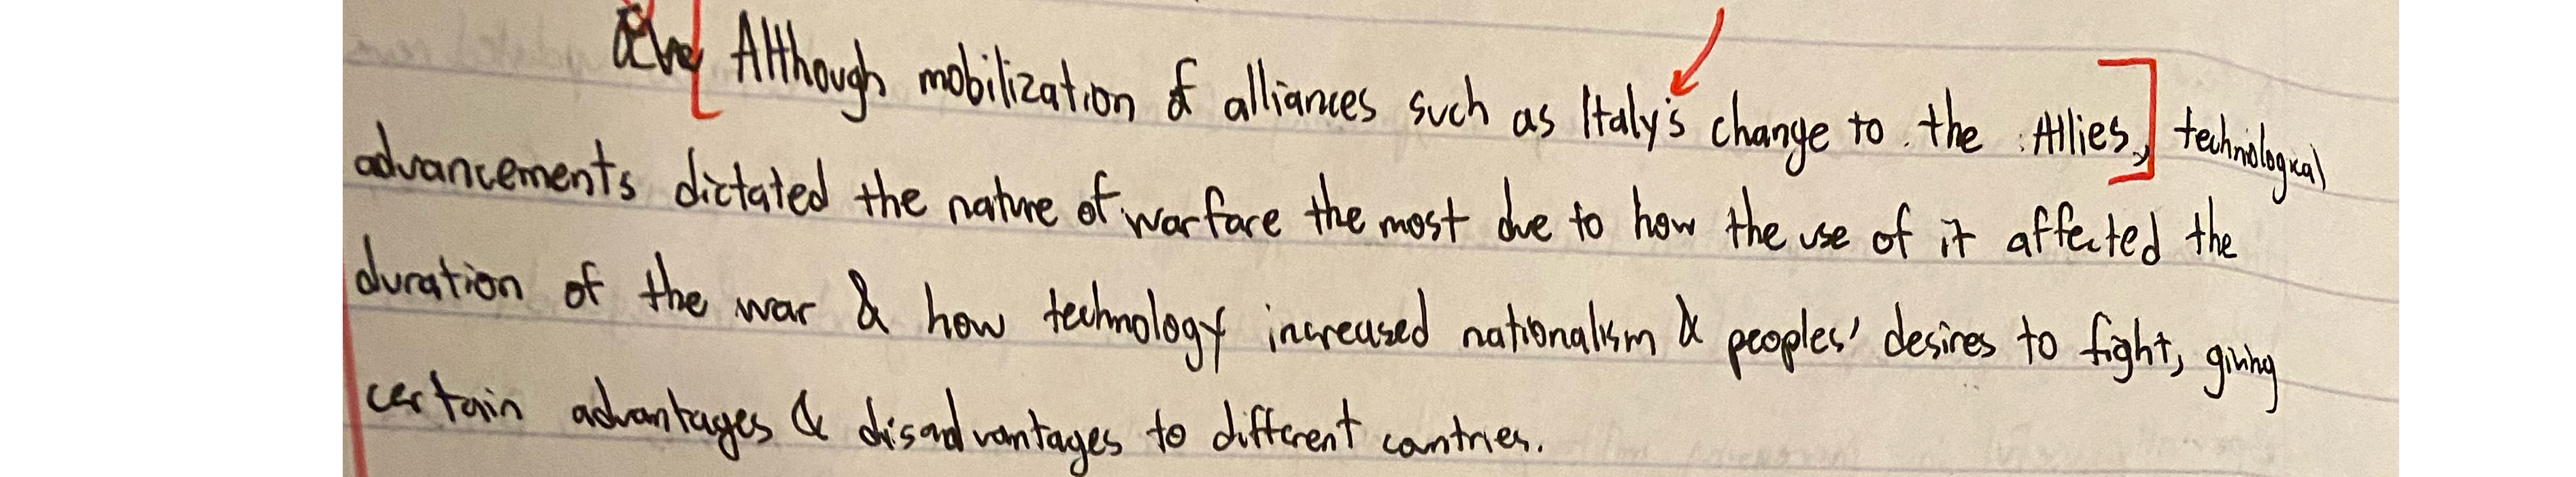 Although mobilization of alliances such as Italy's change to the Allies, technological
advancements dictated the nature of warfare the most due to how the use of it affected the
duration of the war & how technology increased nationalism & peoples' desires to fight, giving
certain advantages & disadvantages to different countries.